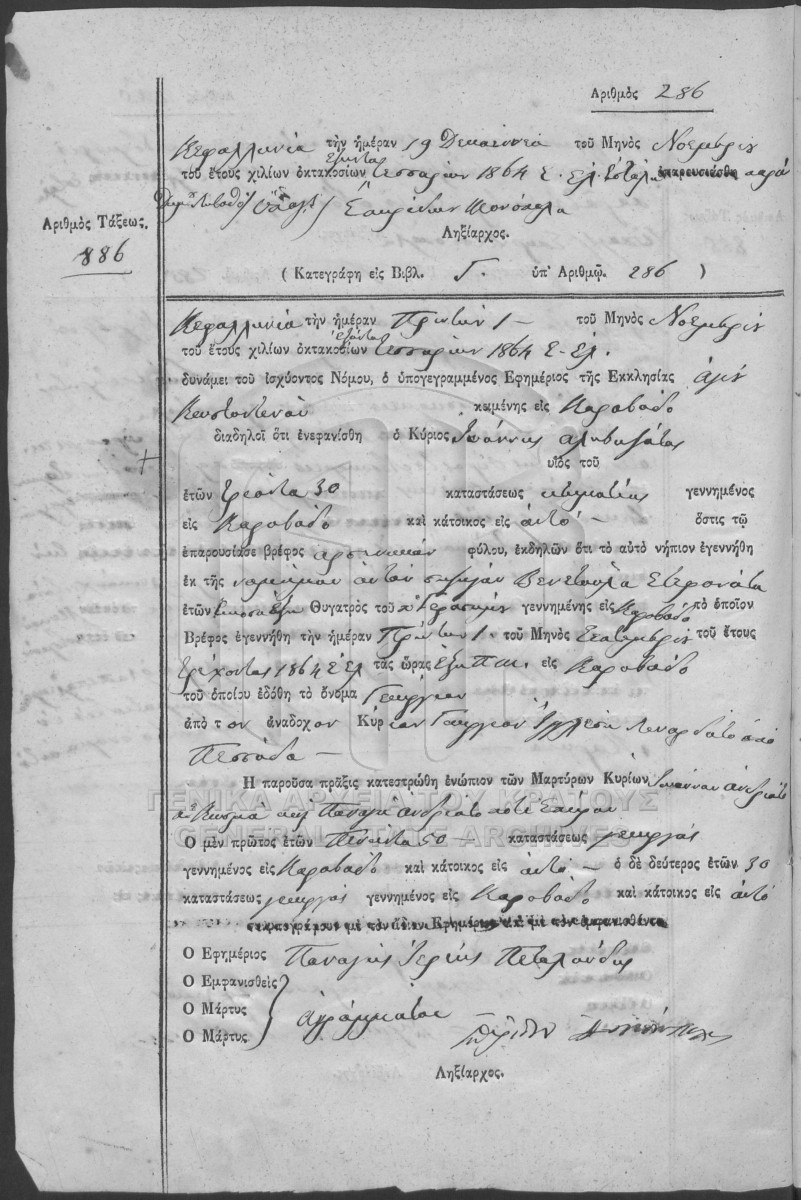 Αριθμός 286
Κεφαλληνία τὴν ἡμέραν 19 Δεκαεννέα τοῦ Μηνὸς Νοεμβρίου
τοῦ ἔτους χιλίων ὀκτακοσίων ἑξήντα τεσσάρων 1864 Ε. Ελ. παρὰ
Σπυρίδων Μονόπολα
Ληξίαρχος.
Ἀριθμὸς Τάξεως.
886
( Κατεγράφη εἰς Βιβλ. Γ. ὑπ' Αριθμῷ. 286 )
Κεφαλληνία τὴν ἡμέραν Πρώτην 1 — τοῦ Μηνὸς Νοεμβρίου
τοῦ ἔτους χιλίων ὀκτακοσίων ἑξήντα τεσσάρων 1864 Ε. Ελ.
δυνάμει τοῦ ἰσχύοντος Νόμου, ὁ ὑπογεγραμμένος Εφημέριος τῆς Εκκλησίας ἁγίου
Κωνσταντίνου κειμένης εἰς Καραβάδο
διαδηλοῖ ὅτι ἐνεφανίσθη ὁ Κύριος Ἰωάννης
υἱὸς τοῦ
ἐτῶν τριάντα 30 καταστάσεως κτηματίας γεννημένος
εἰς Καραβάδο καὶ κάτοικος εἰς αὐτό — ὅστις τῷ
ἐπαρουσίασε βρέφος ἀρσενικοῦ φύλου, ἐκδηλῶν ὅτι τὸ αὐτὸ νήπιον ἐγεννήθη
ἐκ τῆς νομίμου αὐτοῦ συζύγου Βενετούλα Στερονάτα
ἐτῶν εἴκοσι ἕξη Θυγατρὸς τοῦ π. Γερασίμου γεννημένης εἰς Καραβάδο τὸ ὁποῖον
Βρέφος ἐγεννήθη τὴν ἡμέραν Πρώτην 1. τοῦ Μηνὸς Σεπτεμβρίου τοῦ ἔτους
τρέχοντος 1864 Ε Ελ τὰς ὥρας ἕξη π.μ. εἰς Καραβάδο
τοῦ ὁποίου ἐδόθη τὸ ὄνομα Γεώργιον
ἀπὸ τον ἀνάδοχον Κύριον Γεώργιον Λοναρδάτο ἀπὸ
Πεσσάδα —
Η παροῦσα πρᾶξις κατεστρώθη ἐνώπιον τῶν Μαρτύρων Κυρίων Ἰωάννου Ἀνδρεάτο
π. Κοσμᾶ καὶ Παναγῆ Ἀνδρεάτο ποτὲ Σπύρου
Ο μὲν πρῶτος ἐτῶν Πενήντα 50 — καταστάσεως γεωργός
γεννημένος εἰς Καραβάδο καὶ κάτοικος εἰς αὐτό — ὁ δὲ δεύτερος ἐτῶν 30
καταστάσεως γεωργός γεννημένος εἰς Καραβάδο καὶ κάτοικος εἰς αὐτό
Ο Εφημέριος Παναγής Ἱερεύς Πεταλούδης
Ο Εμφανισθεὶς
Ο Μάρτυς ἀγράμματοι
Ο Μάρτυς
Σπυρίδων Μονόπολας
Ληξίαρχος.
ΓΕΝΙΚΑ ΑΡΧΕΙΑ ΤΟΥ ΚΡΑΤΟΥΣ
GENERAL STATE ARCHIVES